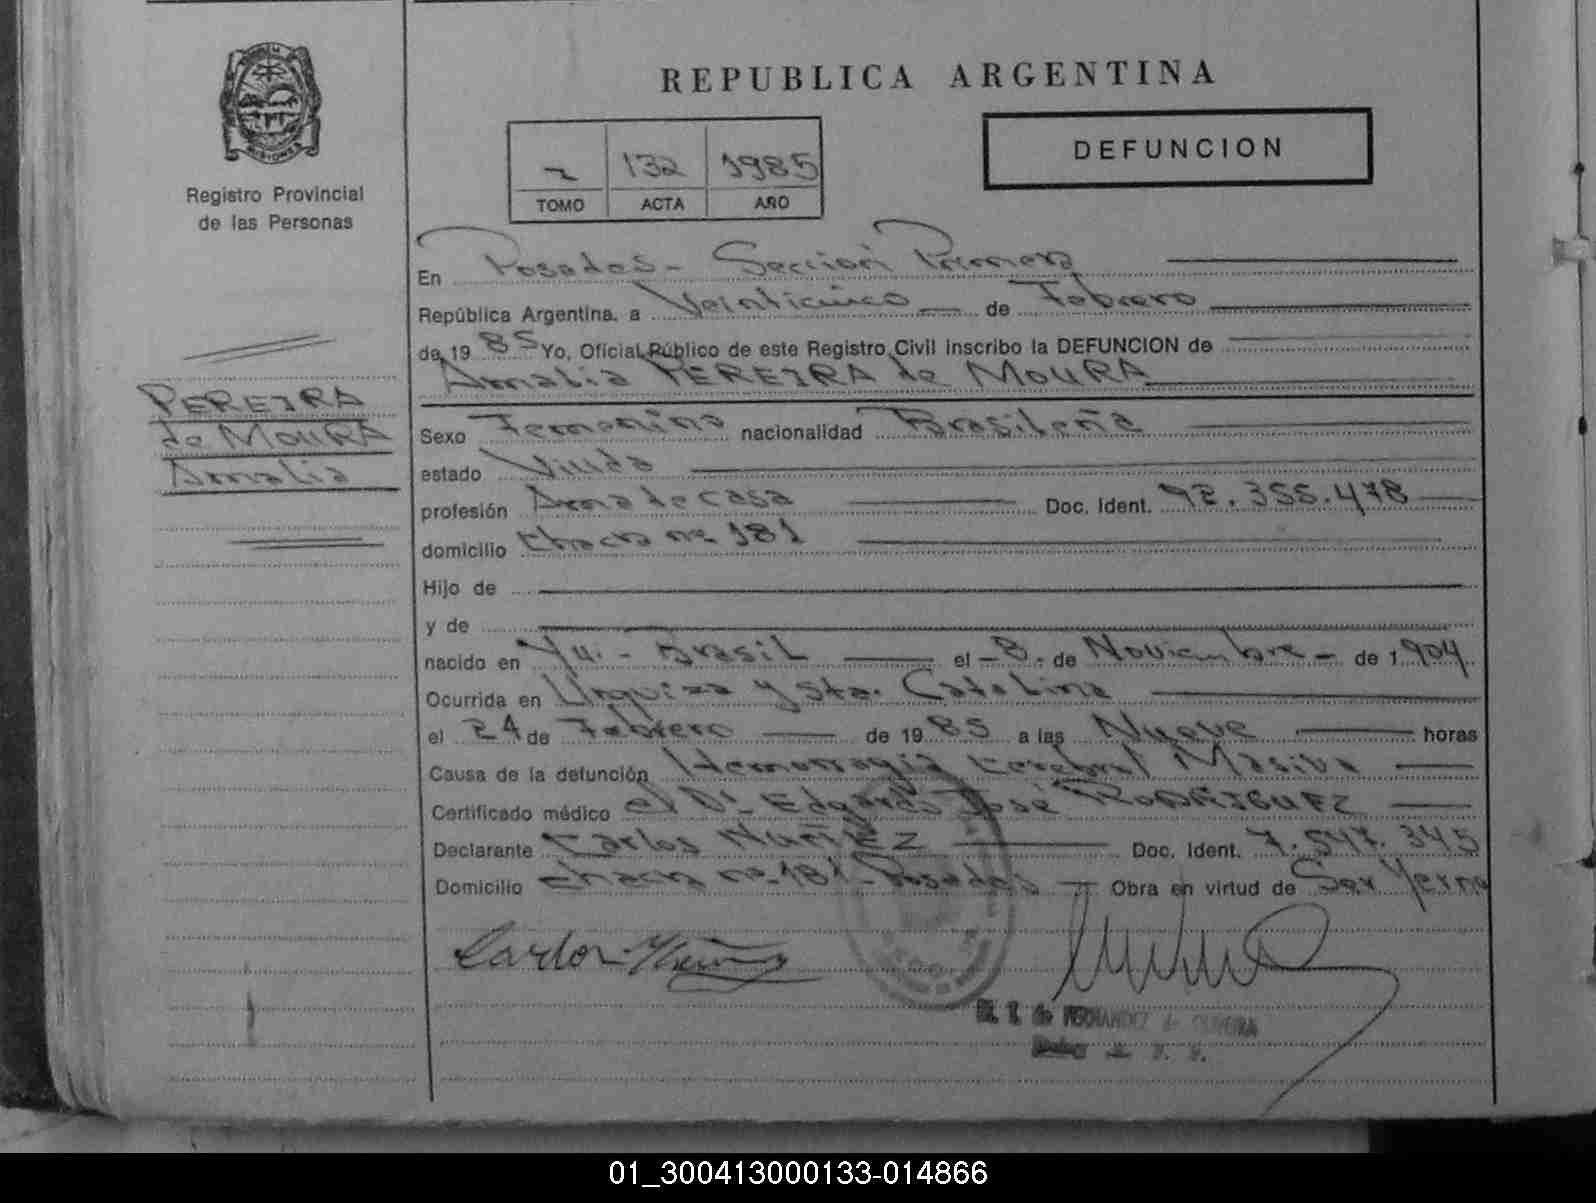 REPUBLICA ARGENTINA
MISIONES
Registro Provincial
de las Personas
2 132 1985
TOMO ACTA AÑO
DEFUNCION
En Posadas - Sección Primera
República Argentina, a Veinticinco de Febrero
de 19 85 Yo, Oficial Público de este Registro Civil inscribo la DEFUNCION de
Amalia PEREIRA de MOURA
PEREIRA
de MOURA
Amalia
Sexo Femenino nacionalidad Brasileña
estado Viuda
profesión Ama de casa Doc. Ident. 92.355.478
domicilio Chacra nº 181
Hijo de
y de
nacido en - Brasil el - 8 - de Noviembre - de 1904
Ocurrida en Urquiza y Sta. Catalina
el 24 de Febrero de 19 85 a las Nueve horas
Causa de la defunción Hemorragia Cerebral Masiva
Certificado médico el Dr. Edgardo José RODRIGUEZ
Declarante Carlos NUÑEZ Doc. Ident. 7.547.345
Domicilio Chacra nº 181 - Posadas Obra en virtud de Ser Yerno
Carlos Nuñez
de FERNANDEZ de OLIVERA
01_300413000133-014866